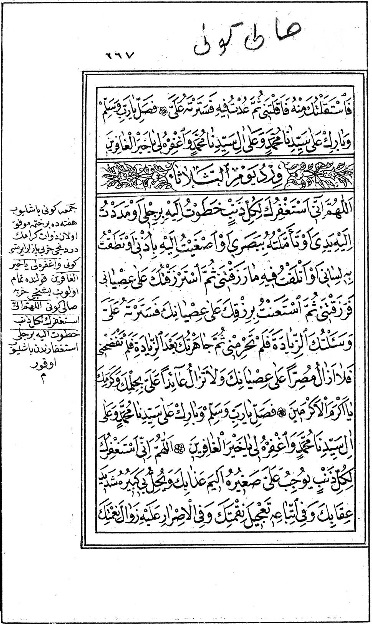 صالی کونی
٢٦٧
فَاسْتَقَلْتُكَ مِنْهُ فَاَقَلْتَنِى ثُمَّ عُدْتُ فِيهِ فَسَتَرْتَهُ عَلَىَّ فَصَلِّ يَارَبِّ وَسَلِّمْ
وَبَارِكْ عَلٰى سَيِّدِنَا مُحَمَّدٍ وَعَلٰى اٰلِ سَيِّدِنَا مُحَمَّدٍ وَاغْفِرْهُ لِى يَاخَيْرَ الْغَافِرِينَ
وِرْدُ يَوْمِ الثَّلَاثَاءِ
اَللّٰهُمَّ اِنِّى اَسْتَغْفِرُكَ لِكُلِّ ذَنْبٍ خَطَوْتُ اِلَيْهِ بِرِجْلِى اَوْ مَدَدْتُ
اِلَيْهِ يَدِى اَوْ تَاَمَّلْتُهُ بِبَصَرِى اَوْ اَصْغَيْتُ اِلَيْهِ بِاُذُنِى اَوْ نَطَقْتُ
بِهِ لِسَانِى اَوْ اَتْلَفْتُ فِيهِ مَا رَزَقْتَنِى ثُمَّ اسْتَرْزَقْتُكَ عَلٰى عِصْيَانِى
فَرَزَقْتَنِى ثُمَّ اسْتَعَنْتُ بِرِزْقِكَ عَلٰى عِصْيَانِكَ فَسَتَرْتَهُ عَلَىَّ
وَسَئَلْتُكَ الزِّيَادَةَ فَلَمْ تَحْرِمْنِى ثُمَّ جَاهَرْتُكَ بَعْدَ الزِّيَادَةِ فَلَمْ تَفْضَحْنِى
فَلَا اَزَالُ مُصِرًّا عَلٰى عِصْيَانِكَ وَلَا تَزَالُ عَآئِدًا عَلَىَّ بِحِلْمِكَ وَكَرَمِكَ
يَا اَكْرَمَ الْاَكْرَمِينَ فَصَلِّ يَارَبِّ وَسَلِّمْ وَبَارِكْ عَلٰى سَيِّدِنَا مُحَمَّدٍ وَعَلٰى
اٰلِ سَيِّدِنَا مُحَمَّدٍ وَاغْفِرْهُ لِى يَاخَيْرَ الْغَافِرِينَ اَللّٰهُمَّ اِنِّى اَسْتَغْفِرُكَ
لِكُلِّ ذَنْبٍ يُوجِبُ عَلٰى صَغِيرِهِ اَلِيمَ عَذَابِكَ وَيُحِلُّ بِى كَبِيرُهُ شَدِيدَ
عِقَابِكَ وَفِى اِتْيَانِهِ تَعْجِيلُ نِقْمَتِكَ وَفِى الْاِصْرَارِ عَلَيْهِ زَوَالُ نِعْمَتِكَ
جمعه کونی باشلیوب
هفته ده بر ختم موفق
اولان ذوات کرام
کونی واغفره لی یاخیر
الغافرین قولنده تمام
صالی کونی اللهم انی
استغفرك لکل ذنب
خطوت الیه برجلی
استغفارندن باشلیوب
اوقور
م